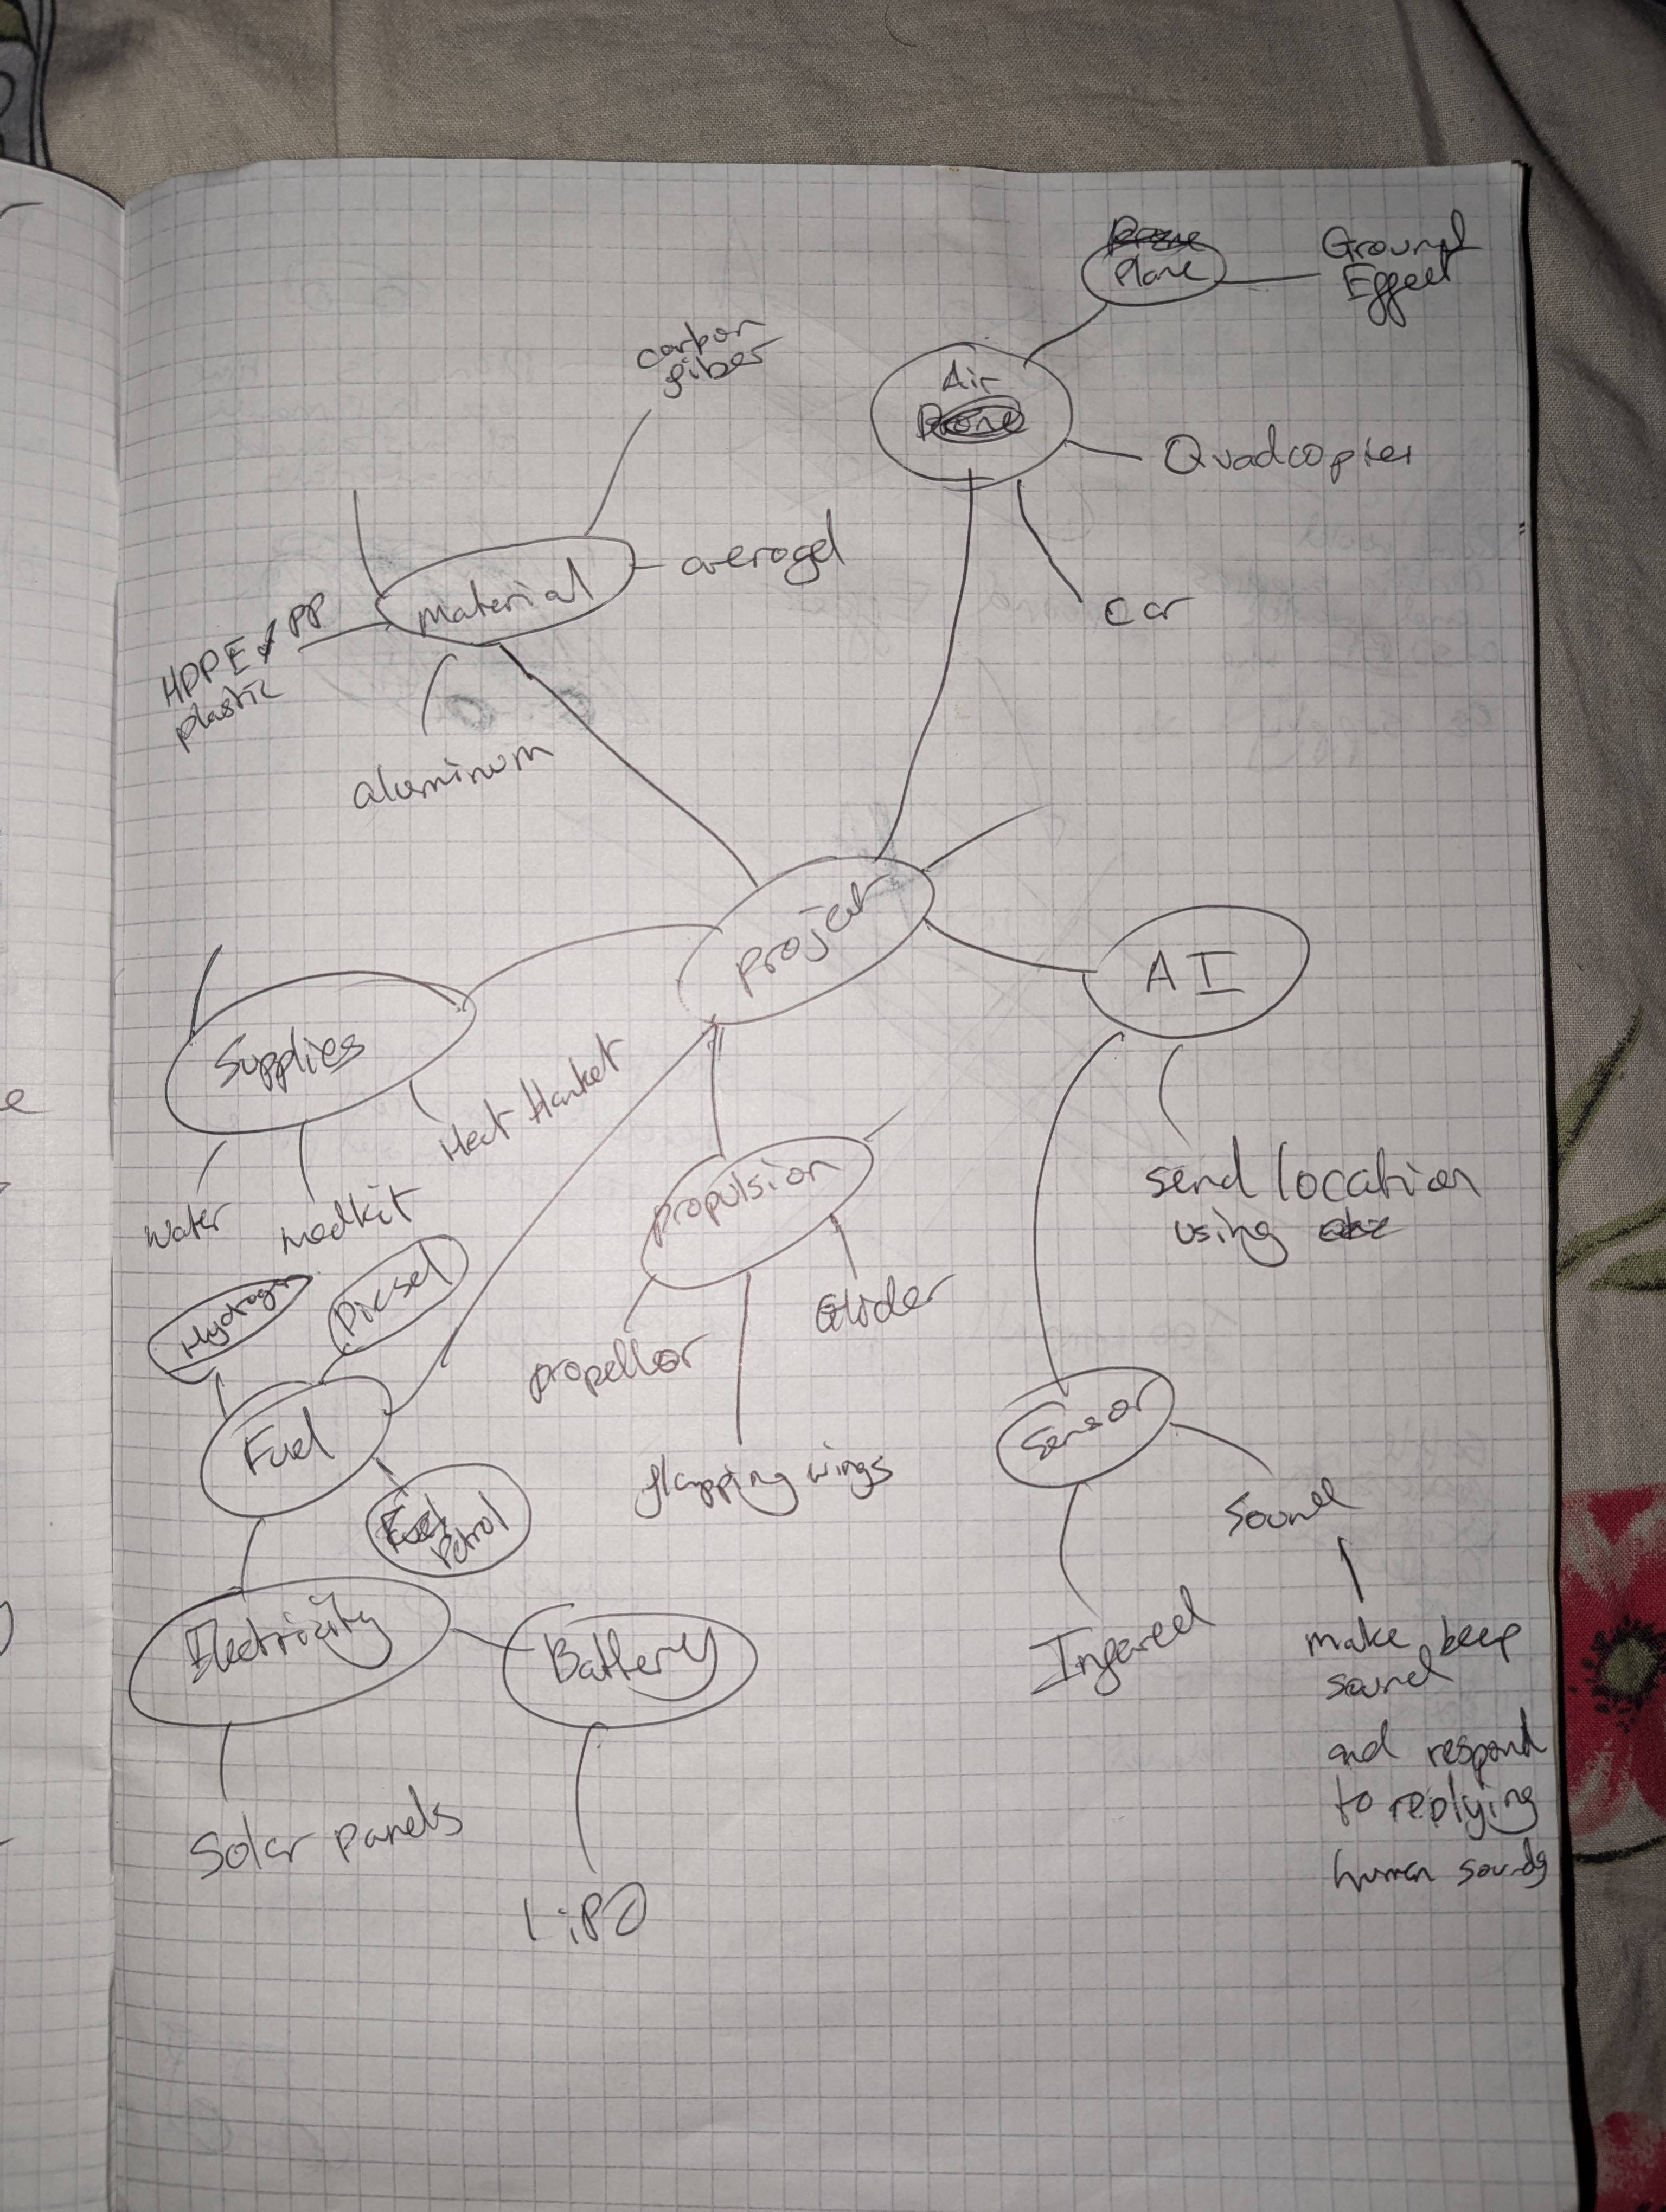 Plane
Ground
Effect
Air
Quadcopter
car
carbon
fiber
Material
averogel
HDPE PP
plastic
aluminum
Project
AI
send location
using
Supplies
Heat blanket
water
medkit
Propulsion
Glider
propellor
flapping wings
Hydrogen
Diesel
Fuel
Petrol
Electricity
Battery
Solar panels
LiPO
Sensor
Infared
Sound
make beep
sound
and respond
to replying
human sounds